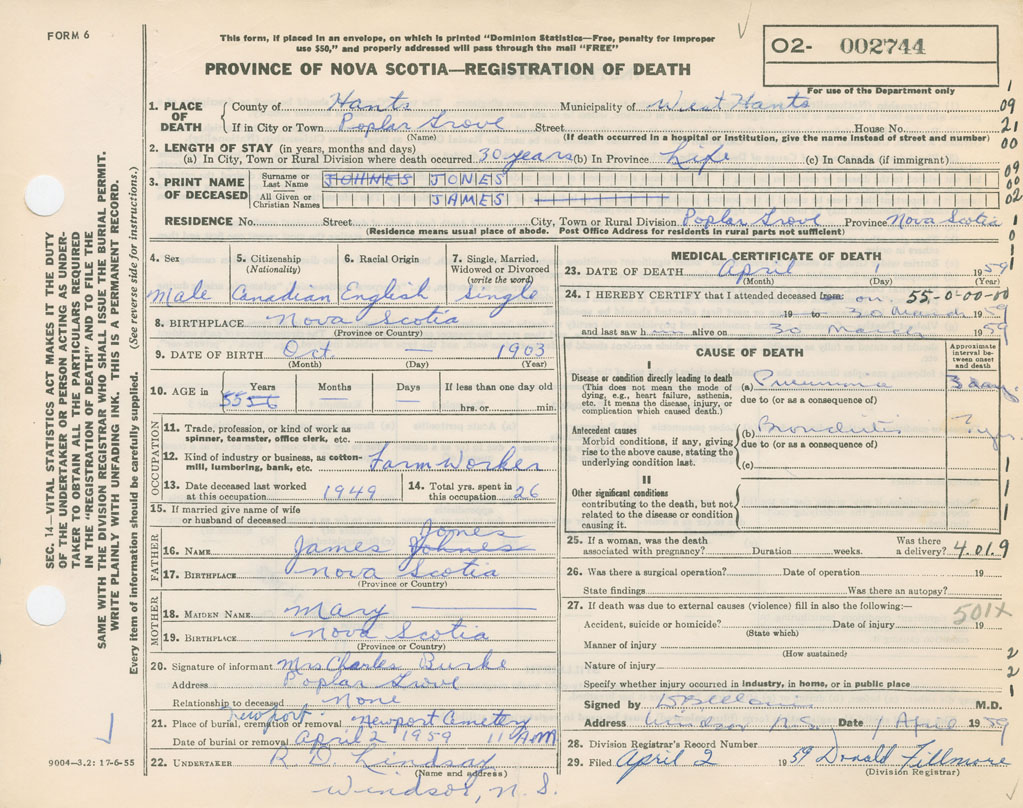 FORM 6
This form, if placed in an envelope, on which is printed "Dominion Statistics—Free, penalty for improper
use $50," and properly addressed will pass through the mail "FREE"
02- 002744
For use of the Department only
PROVINCE OF NOVA SCOTIA—REGISTRATION OF DEATH
SEC. 14—VITAL STATISTICS ACT MAKES IT THE DUTY
OF THE UNDERTAKER OR PERSON ACTING AS UNDER-
TAKER TO OBTAIN ALL THE PARTICULARS REQUIRED
IN THE "REGISTRATION OF DEATH" AND TO FILE THE
SAME WITH THE DIVISION REGISTRAR WHO SHALL ISSUE THE BURIAL PERMIT.
WRITE PLAINLY WITH UNFADING INK. THIS IS A PERMANENT RECORD.
Every item of information should be carefully supplied. (See reverse side for instructions.)
1. PLACE OF DEATH County of Hants Municipality of West Hants
If in City or Town Poplar Grove Street House No.
(Name) (If death occurred in a hospital or institution, give the name instead of street and number)
2. LENGTH OF STAY (in years, months and days)
(a) In City, Town or Rural Division where death occurred 30 years (b) In Province Life (c) In Canada (if immigrant)
3. PRINT NAME OF DECEASED Surname or Last Name JOHNES JONES
All Given or Christian Names JAMES
RESIDENCE No. Street City, Town or Rural Division Poplar Grove Province Nova Scotia
(Residence means usual place of abode. Post Office Address for residents in rural parts not sufficient)
1
09
21
00
09
00
02
1
0
1
4. Sex 5. Citizenship (Nationality) 6. Racial Origin 7. Single, Married, Widowed or Divorced (write the word)
Male Canadian English Single
8. BIRTHPLACE Nova Scotia
(Province or Country)
9. DATE OF BIRTH Oct — 1903
(Month) (Day) (Year)
10. AGE in Years Months Days If less than one day old
55 56 — — hrs. or min.
OCCUPATION
11. Trade, profession, or kind of work as
spinner, teamster, office clerk, etc.
12. Kind of industry or business, as cotton-
mill, lumbering, bank, etc. Farm Worker
13. Date deceased last worked at this occupation 1949 14. Total yrs. spent in this occupation 26
15. If married give name of wife
or husband of deceased
FATHER
Jones
16. NAME James Johnes
17. BIRTHPLACE Nova Scotia
(Province or Country)
MOTHER
18. MAIDEN NAME Mary
19. BIRTHPLACE Nova Scotia
(Province or Country)
20. Signature of informant Mrs Charles Burke
Address Poplar Grove
Relationship to deceased None
Newport
21. Place of burial, cremation or removal Newport Cemetery
Date of burial or removal April 2 1959 11 AM
22. UNDERTAKER R. D. Lindsay
(Name and address)
Windsor, N. S.
9004—3.2: 17-6-55
MEDICAL CERTIFICATE OF DEATH
23. DATE OF DEATH April 1 1959
(Month) (Day) (Year)
24. I HEREBY CERTIFY that I attended deceased from: on 55-0-00-00
19 to 30 March 1959
and last saw him alive on 30 March 1959
CAUSE OF DEATH Approximate interval between onset and death
I
Disease or condition directly leading to death (a) Pneumonia 3 days.
(This does not mean the mode of
dying, e.g., heart failure, asthenia,
etc. It means the disease, injury, or
complication which caused death.)
due to (or as a consequence of)
Antecedent causes (b) Bronchitis ? yrs.
Morbid conditions, if any, giving
rise to the above cause, stating the
underlying condition last.
due to (or as a consequence of)
(c)
II
Other significant conditions
contributing to the death, but not
related to the disease or condition
causing it.
1
1
1
25. If a woman, was the death
associated with pregnancy? Duration weeks. Was there a delivery?
4.01.9
26. Was there a surgical operation? Date of operation 19
State findings Was there an autopsy?
27. If death was due to external causes (violence) fill in also the following:—
501X
Accident, suicide or homicide? Date of injury 19
(State which)
Manner of injury
(How sustained)
Nature of injury
Specify whether injury occurred in industry, in home, or in public place
2
2
1
Signed by M.D.
Address Windsor N.S. Date 1 April 1959
28. Division Registrar's Record Number
29. Filed April 2 1959 Donald Fillmore
(Division Registrar)